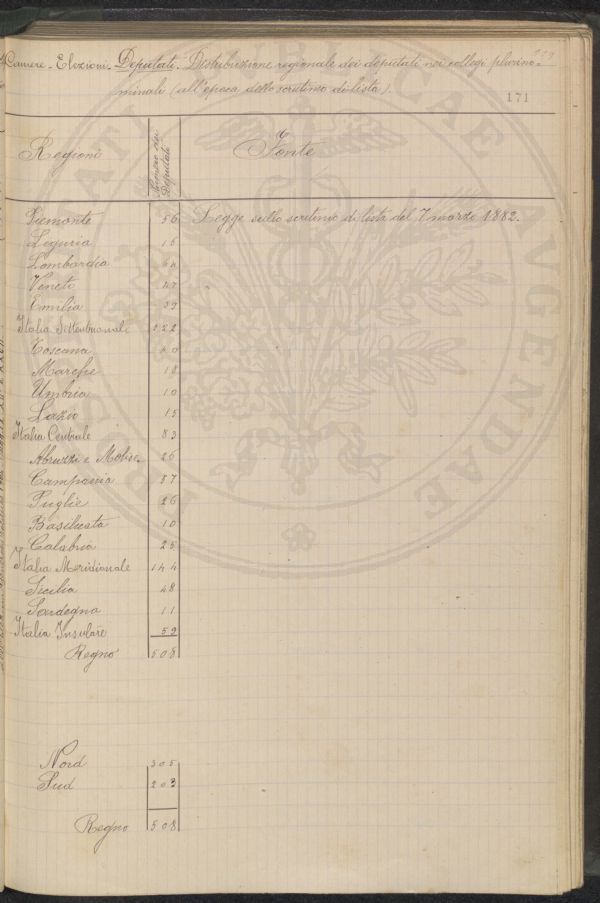 Camere - Elezioni - Deputati - Distribuzione regionale dei deputati nei collegi plurino-
minali (all'epoca dello scrutinio di lista).
171
Regioni Numero dei Deputati Fonte
Piemonte 56 Legge sullo scrutinio di lista del 7 marzo 1882.
Liguria 16
Lombardia 64
Veneto 47
Emilia 39
Italia Settentrionale 222
Toscana 40
Marche 18
Umbria 10
Lazio 15
Italia Centrale 83
Abruzzi e Molise 26
Campania 57
Puglie 26
Basilicata 10
Calabria 25
Italia Meridionale 144
Sicilia 48
Sardegna 11
Italia Insulare 59
Regno 508
Nord 305
Sud 203
Regno 508